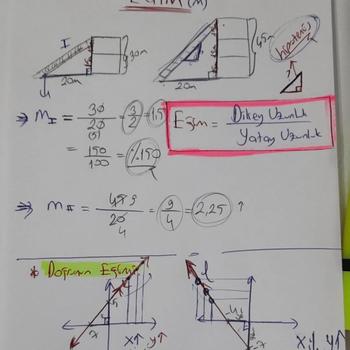 EĞİM (m)
I
30m
20m
45m
20m
hipotenüs
⇒ m_I = 30/20 = 3/2 = 1,5
= 150/100 = %150
Eğim = Dikey Uzunluk / Yatay Uzunluk
⇒ m_II = 45/20 = 9/4 = 2,25
9
4
* Doğrunun Eğimi
l
x↑ y↑
x↓ y↑